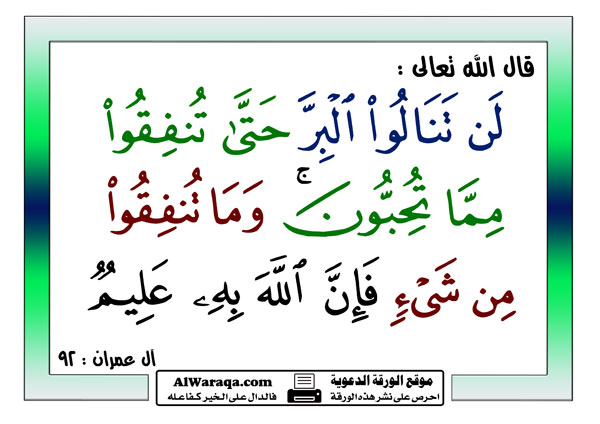 قال الله تعالى :
لَن تَنَالُوا۟ ٱلْبِرَّ حَتَّىٰ تُنفِقُوا۟
مِمَّا تُحِبُّونَ ۚ وَمَا تُنفِقُوا۟
مِن شَىْءٍ فَإِنَّ ٱللَّهَ بِهِۦ عَلِيمٌ
آل عمران : ٩٢
موقع الورقة الدعوية AlWaraqa.com
احرص على نشر هذه الورقة فالدال على الخير كفاعله